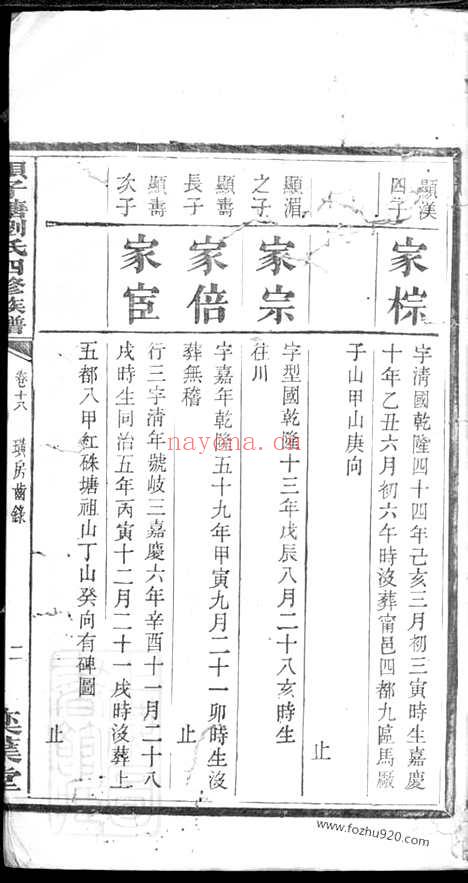 顯渼四子
家棕
字清國乾隆四十四年己亥三月初三寅時生嘉慶
十年乙丑六月初六午時沒葬甯邑四都九區馬厰
子山甲山庚向
止
顯湄之子
家宗
字型國乾隆十三年戊辰八月二十八亥時生
往川
止
顯燾長子
家倍
字嘉年乾隆五十九年甲寅九月二十一卯時生沒
葬無稽
止
顯燾次子
家宦
行三字清年號岐三嘉慶六年辛酉十一月二十八
戌時生同治五年丙寅十二月二十一戌時沒葬上
五都八甲紅硃塘祖山丁山癸向有碑圖
止
劉氏四修族譜
卷十八
璜房齒錄
二
nayona.cn
www.fozhu920.com